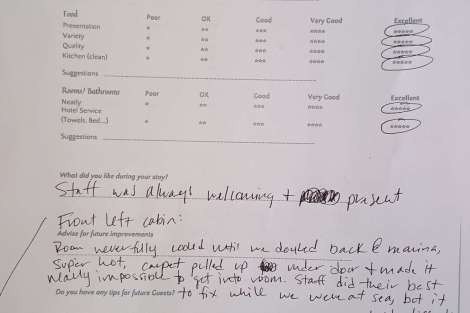 Food Poor OK Good Very Good Excellent
Presentation * ** *** **** *****
Variety * ** *** **** *****
Quality * ** *** **** *****
Kitchen (clean) * ** *** **** *****
Suggestions
Rooms/ Bathrooms Poor OK Good Very Good Excellent
Neatly * ** *** **** *****
Hotel Service
(Towels, Bed...) * ** *** **** *****
Suggestions
What did you like during your stay?
Staff was always welcoming + present
Front left cabin:
Advise for future improvements
Room never fully cooled until we docked back @ marina,
super hot, carpet pulled up under door + made it
nearly impossible to get into room. Staff did their best
Do you have any tips for future Guests? to fix while we were at sea, but it